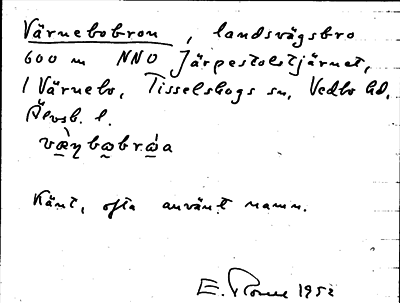 Värnebobron, landsvägsbro
600 m NNO Järpestolstjärnet,
i Värnebo, Tisselskogs sn, Vedbo hd,
Älvsb. l.
Känt, ofta använt namn.
E. 1952